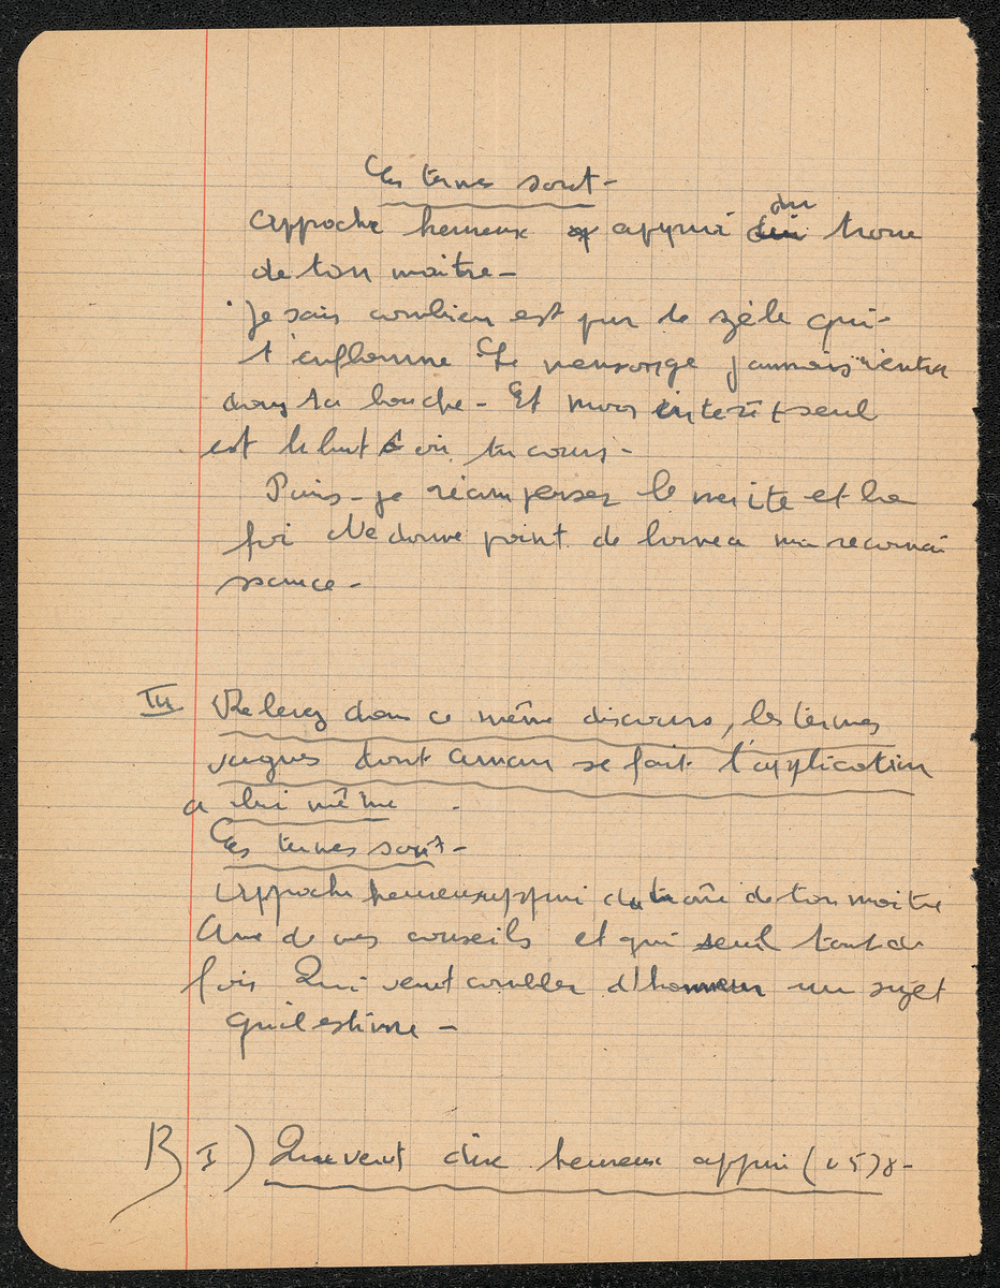 Ces termes sont -
Approche heureux appui du trone
de ton maitre -
Je sais combien est pur le zèle qui -
t'enflamme Le mensonge jamais n'entra
dans ta bouche - Et mon interêt seul
est le but où tu cours -
Puis-je récompenser le merite et la
foi Ne donne point de borne a ma reconnai
ssance -
III Relevez dans ce même discours, les termes
vagues dont Aman se fait l'application
a lui même .
Ces termes sont -
Approche heureux appui du trône de ton maitre
Ame de mes conseils et qui seul tant de
fois Qui veut combler d'honneur un sujet
qu'il estime -
B I) Que veut dire heureux appui (v 578 -